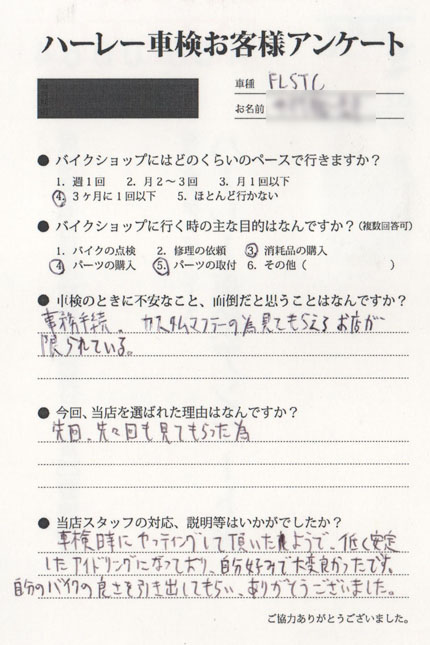 ハーレー車検お客様アンケート
車種 FLSTC
お名前
● バイクショップにはどのくらいのペースで行きますか?
1. 週1回 2. 月2〜3回 3. 月1回以下
4. 3ヶ月に1回以下 5. ほとんど行かない
● バイクショップに行く時の主な目的はなんですか?(複数回答可)
1. バイクの点検 2. 修理の依頼 3. 消耗品の購入
4. パーツの購入 5. パーツの取付 6. その他( )
● 車検のときに不安なこと、面倒だと思うことはなんですか?
事務手続。カスタムマフラーの為見てもらえるお店が
限られている。
● 今回、当店を選ばれた理由はなんですか?
先回、先々回も見てもらった為
● 当店スタッフの対応、説明等はいかがでしたか?
車検時にセッティングして頂いたようで、低く安定
したアイドリングになっており、自分好みで大変良かったです。
自分のバイクの良さを引き出してもらい、ありがとうございました。
ご協力ありがとうございました。